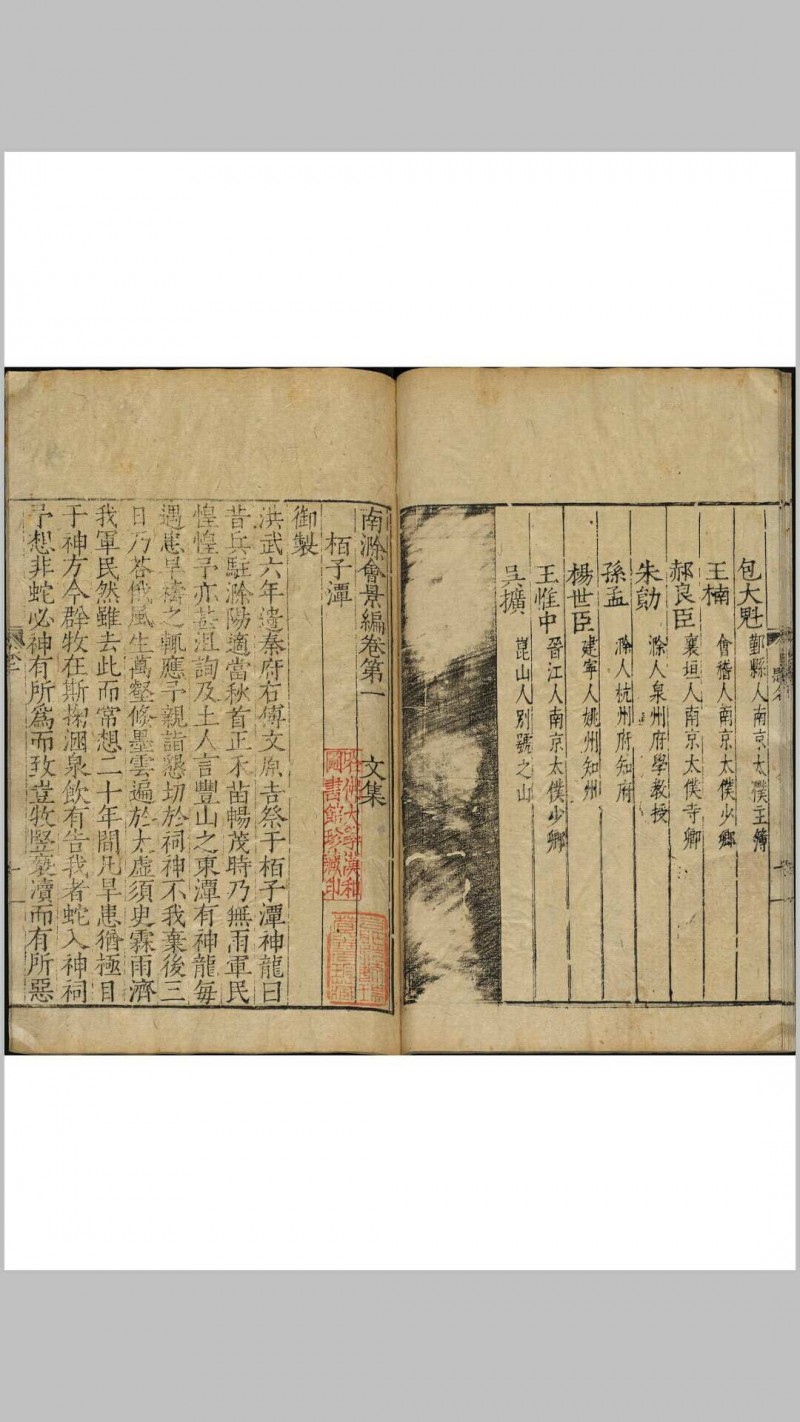 包大魁 鄞縣人南京太僕主簿
王楠 會稽人南京太僕少卿
郝良臣 襄垣人南京太僕寺卿
朱勛 滁人泉州府學教授
孫孟 滁人杭州府知府
楊世臣 建寧人姚州知州
王惟中 晉江人南京太僕少卿
吳擴 崑山人別號之山
南滁會景編卷第一 文集
栢子潭
御製
洪武六年遣秦府右傅文原吉祭于栢子潭神龍曰
昔兵駐滁陽適當秋首正禾苗暢茂時乃無雨軍民
惶惶予亦甚沮詢及土人言豐山之東潭有神龍每
遇患旱禱之輒應予親詣懇切於祠神不我棄後三
日乃荅俄風生萬壑倏墨雲遍於太虛須史霖雨濟
我軍民然雖去此而常想二十年間凡旱患猶極目
于神方今群牧在斯掬洄泉飲有告我者蛇入神祠
予想非蛇必神有所為而致豈牧豎褻瀆而有所惡
哈佛大學漢和
圖書館珍藏印